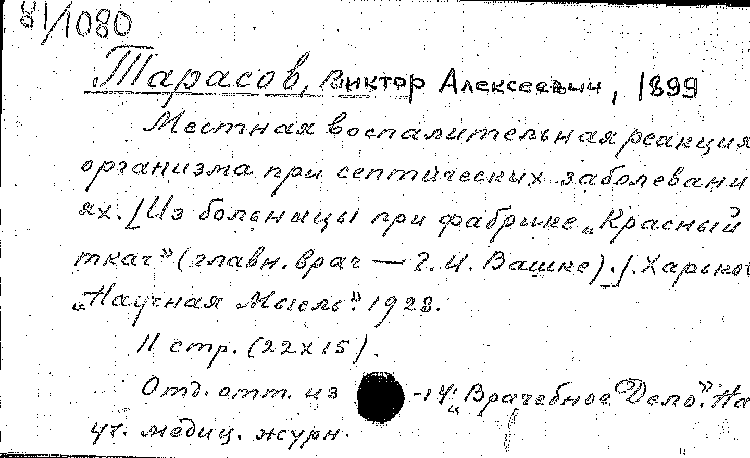 81/1080
Тарасов, Виктор Алексеевич, 1899
Местная воспалительная реакция
организма при септических заболевани
ях. [Из больницы при фабрике „Красный
ткач” (главн. врач — Г. И. Вашке).]. Харьков
„Научная Мысль”. 1928.
11 стр. (22х15).
Отд. отт. из -14; „Врачебное Дело”. На
уч. медиц. журн.